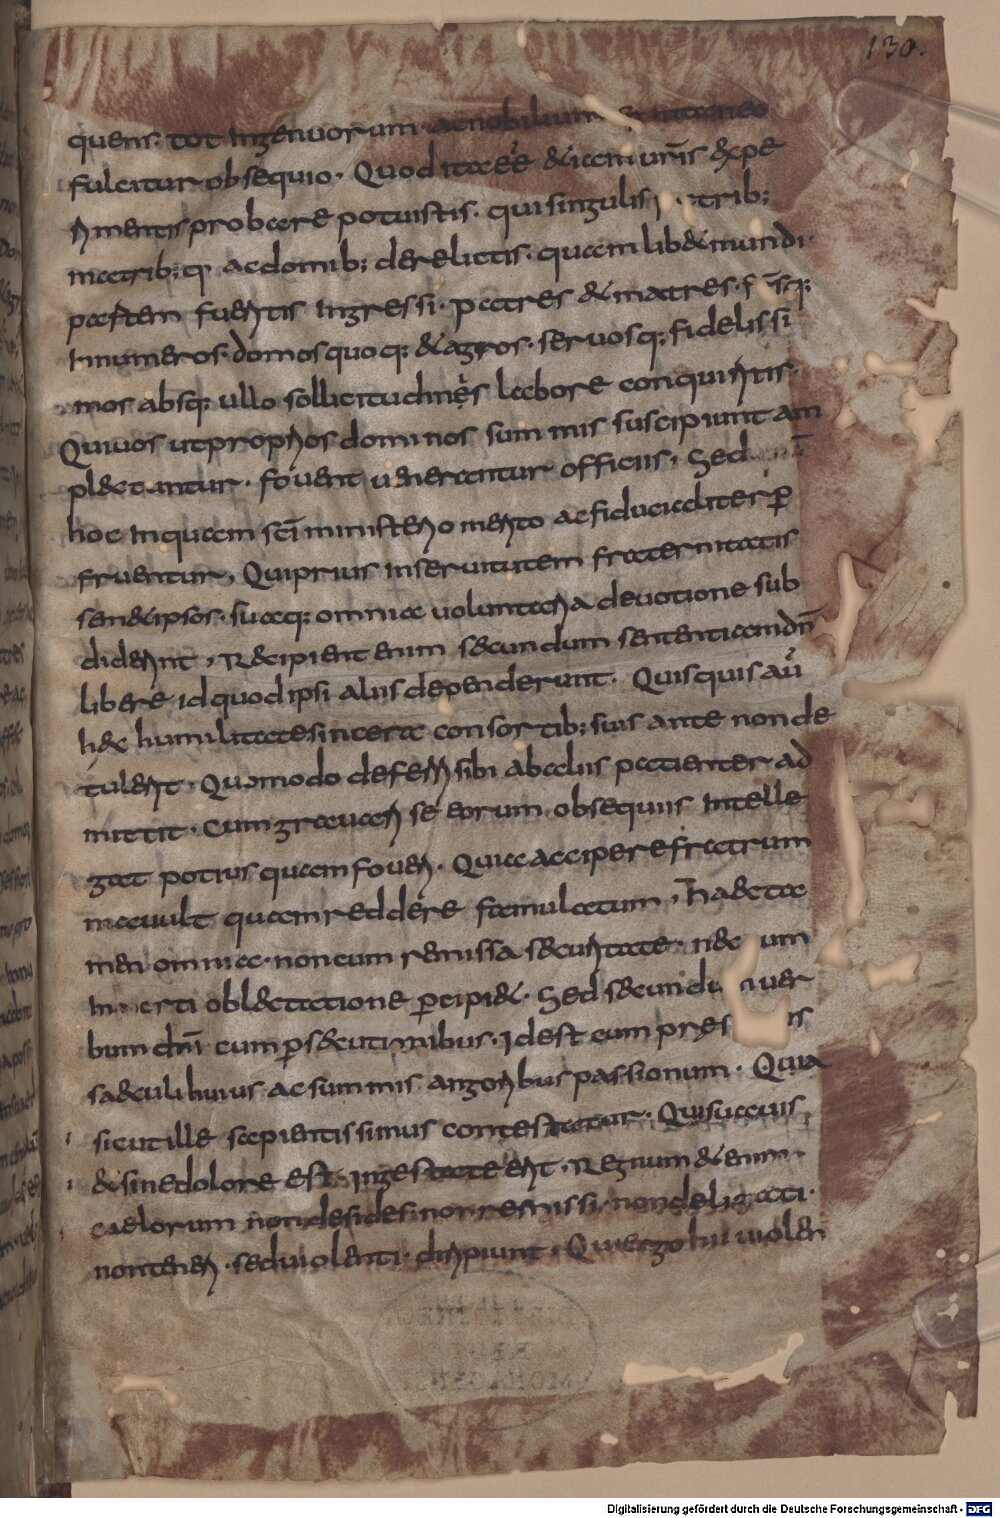 130.
quens. tot ingenuorum. ac nobilium
fulcitur obsequio. Quod ita eē & iam uris expe
rimentis probare potuistis. qui singulis trib;
matrib;q. ac domib; derelictis. quamlib& mundi
partem fueritis ingressi. patres & matres. frsq;
innumeros. domos quoq; & agros. seruosq; fidelissi
mos absq; ullo sollicitudinis labore conquiritis.
Qui uos ut proprios dominos summis suscipiunt am
plectuntur. fouent uenerantur officiis, Sed
hoc inquam sci ministerio merito ac fiducialiter p
fruentur, Qui prius in seruitutem fraternitatis
sem&ipsos. suaq; omnia uoluntaria deuotione sub
diderint, Recipient enim secundum sententiam dni
libere id quod ipsi aliis dependerunt. Quisquis au
hęc humilitate sincera consortib; suis ante non de
tulerit. Quomodo deferri sibi ab aliis patienter ad
mittit. cum grauari se eorum obsequiis intelle
gat potius quam foueri. Quia accipere fratrum
mauult quam reddere famulatum, haec ta
men omnia. non cum remissa securitate. nec um
inerti oblectatione pcipi&. Sed secundu uer
bum dni cum psecutionibus. Idest cum pres is
saeculi huius ac summis angoribus passionum. Quia
sicut ille sapientissimus contestatur. Qui suauis
& sine dolore est. in gestate erit. Regnum &enim
caelorum non desides. non remissi. non delicati.
non teneri. sed uiolenti. diripiunt. Qui ergo hii uiolen
Digitalisierung gefördert durch die Deutsche Forschungsgemeinschaft - DFG